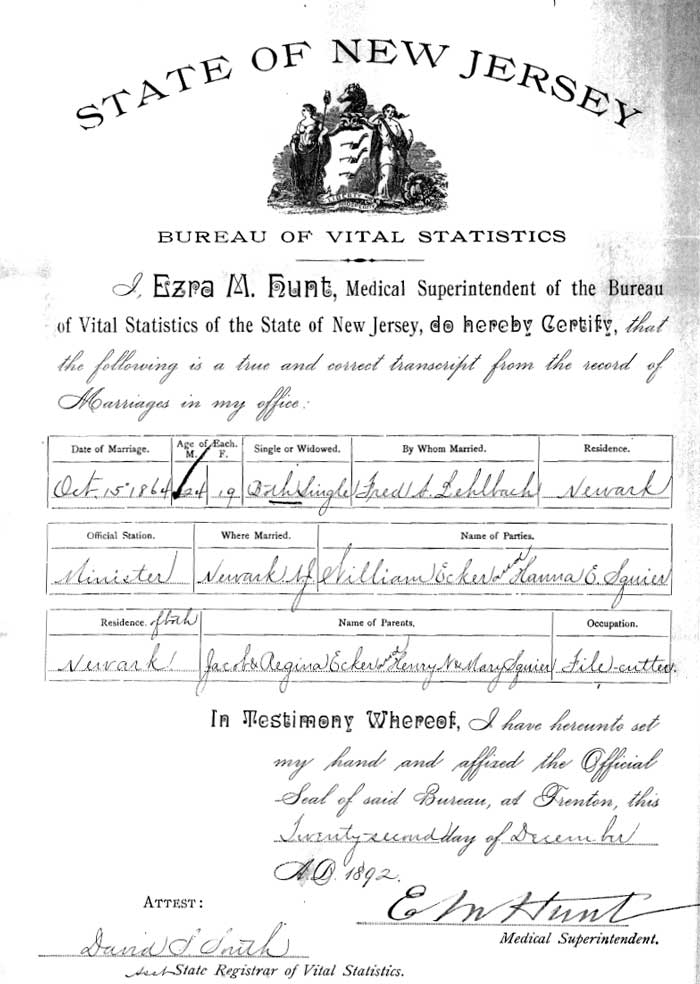 STATE OF NEW JERSEY
BUREAU OF VITAL STATISTICS
I, Ezra M. Hunt, Medical Superintendent of the Bureau
of Vital Statistics of the State of New Jersey, do hereby Certify, that
the following is a true and correct transcript from the record of
Marriages in my office:
Date of Marriage. Age of Each. M. F. Single or Widowed. By Whom Married. Residence.
Oct. 15" 1864 24 19 Both Single Fred A. Lehlbach Newark
Official Station. Where Married. Name of Parties.
Minister Newark NJ William Ecker and Hanna E. Squier
Residence. of both Name of Parents, Occupation.
Newark Jacob & Regina Ecker and Henry N & Mary Squier File-cutter.
In Testimony Whereof, I have hereunto set
my hand and affixed the Official
Seal of said Bureau, at Trenton, this
Twenty-second day of December
A.D. 1892.
ATTEST:
E M Hunt
Medical Superintendent.
David S South
State Registrar of Vital Statistics.